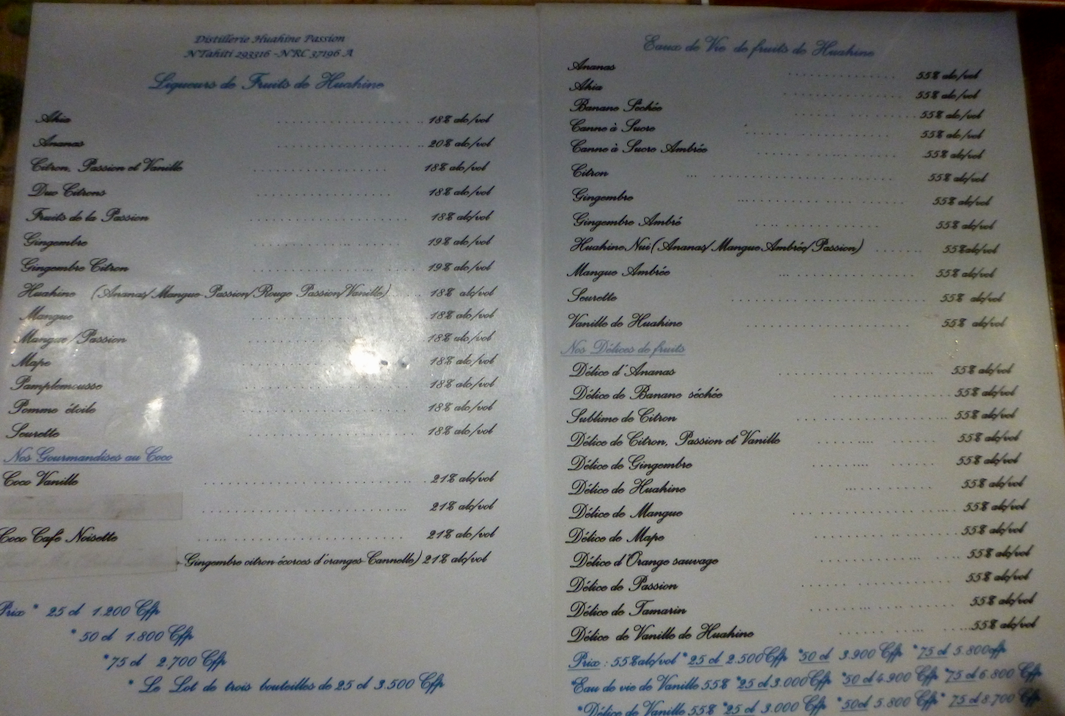 Distillerie Huahine Passion
N°Tahiti 293316 -N°RC 37196 A
Liqueurs de Fruits de Huahine
Ahia ........ 18% alc/vol
Ananas ........ 20% alc/vol
Citron, Passion et Vanille ........ 18% alc/vol
Duo Citrons ........ 18% alc/vol
Fruits de la Passion ........ 18% alc/vol
Gingembre ........ 19% alc/vol
Gingembre Citron ........ 19% alc/vol
Huahine (Ananas/Mangue Passion/Rouge Passion/Vanille) ........ 18% alc/vol
Mangue ........ 18% alc/vol
Mangue/Passion ........ 18% alc/vol
Mape ........ 18% alc/vol
Pamplemousse ........ 18% alc/vol
Pomme étoile ........ 18% alc/vol
Seurette ........ 18% alc/vol
Nos Gourmandises au Coco
Coco Vanille ........ 21% alc/vol
........ 21% alc/vol
Coco Café Noisette ........ 21% alc/vol
Gingembre citron écorces d'oranges Cannelle) 21% alc/vol
Prix * 25 cl 1.200 Cfp
* 50 cl 1.800 Cfp
*75 cl 2.700 Cfp
* Le Lot de trois bouteilles de 25 cl 3.500 Cfp
Eaux de Vie de fruits de Huahine
Ananas ........ 55% alc/vol
Ahia ........ 55% alc/vol
Banane Séchée ........ 55% alc/vol
Canne à Sucre ........ 55% alc/vol
Canne à Sucre Ambrée ........ 55% alc/vol
Citron ........ 55% alc/vol
Gingembre ........ 55% alc/vol
Gingembre Ambré ........ 55% alc/vol
Huahine Nui (Ananas/Mangue Ambrée/Passion) ........ 55%alc/vol
Mangue Ambrée ........ 55% alc/vol
Seurette ........ 55% alc/vol
Vanille de Huahine ........ 55% alc/vol
Nos Délices de fruits
Délice d'Ananas ........ 55% alc/vol
Délice de Banane séchée ........ 55% alc/vol
Sublime de Citron ........ 55% alc/vol
Délice de Citron, Passion et Vanille ........ 55% alc/vol
Délice de Gingembre ........ 55% alc/vol
Délice de Huahine ........ 55% alc/vol
Délice de Mangue ........ 55% alc/vol
Délice de Mape ........ 55% alc/vol
Délice d'Orange sauvage ........ 55% alc/vol
Délice de Passion ........ 55% alc/vol
Délice de Tamarin ........ 55% alc/vol
Délice de Vanille de Huahine ........ 55% alc/vol
Prix : 55%alc/vol *25 cl 2.500Cfp *50 cl 3.900 Cfp *75 cl 5.800cfp
Eau de vie de Vanille 55% *25 cl 3.000Cfp *50 cl 4.900 Cfp *75 cl 6.800 Cfp
*Délice de Vanille 55% *25 cl 3.000 Cfp *50cl 5.800 Cfp *75 cl 8.700 Cfp